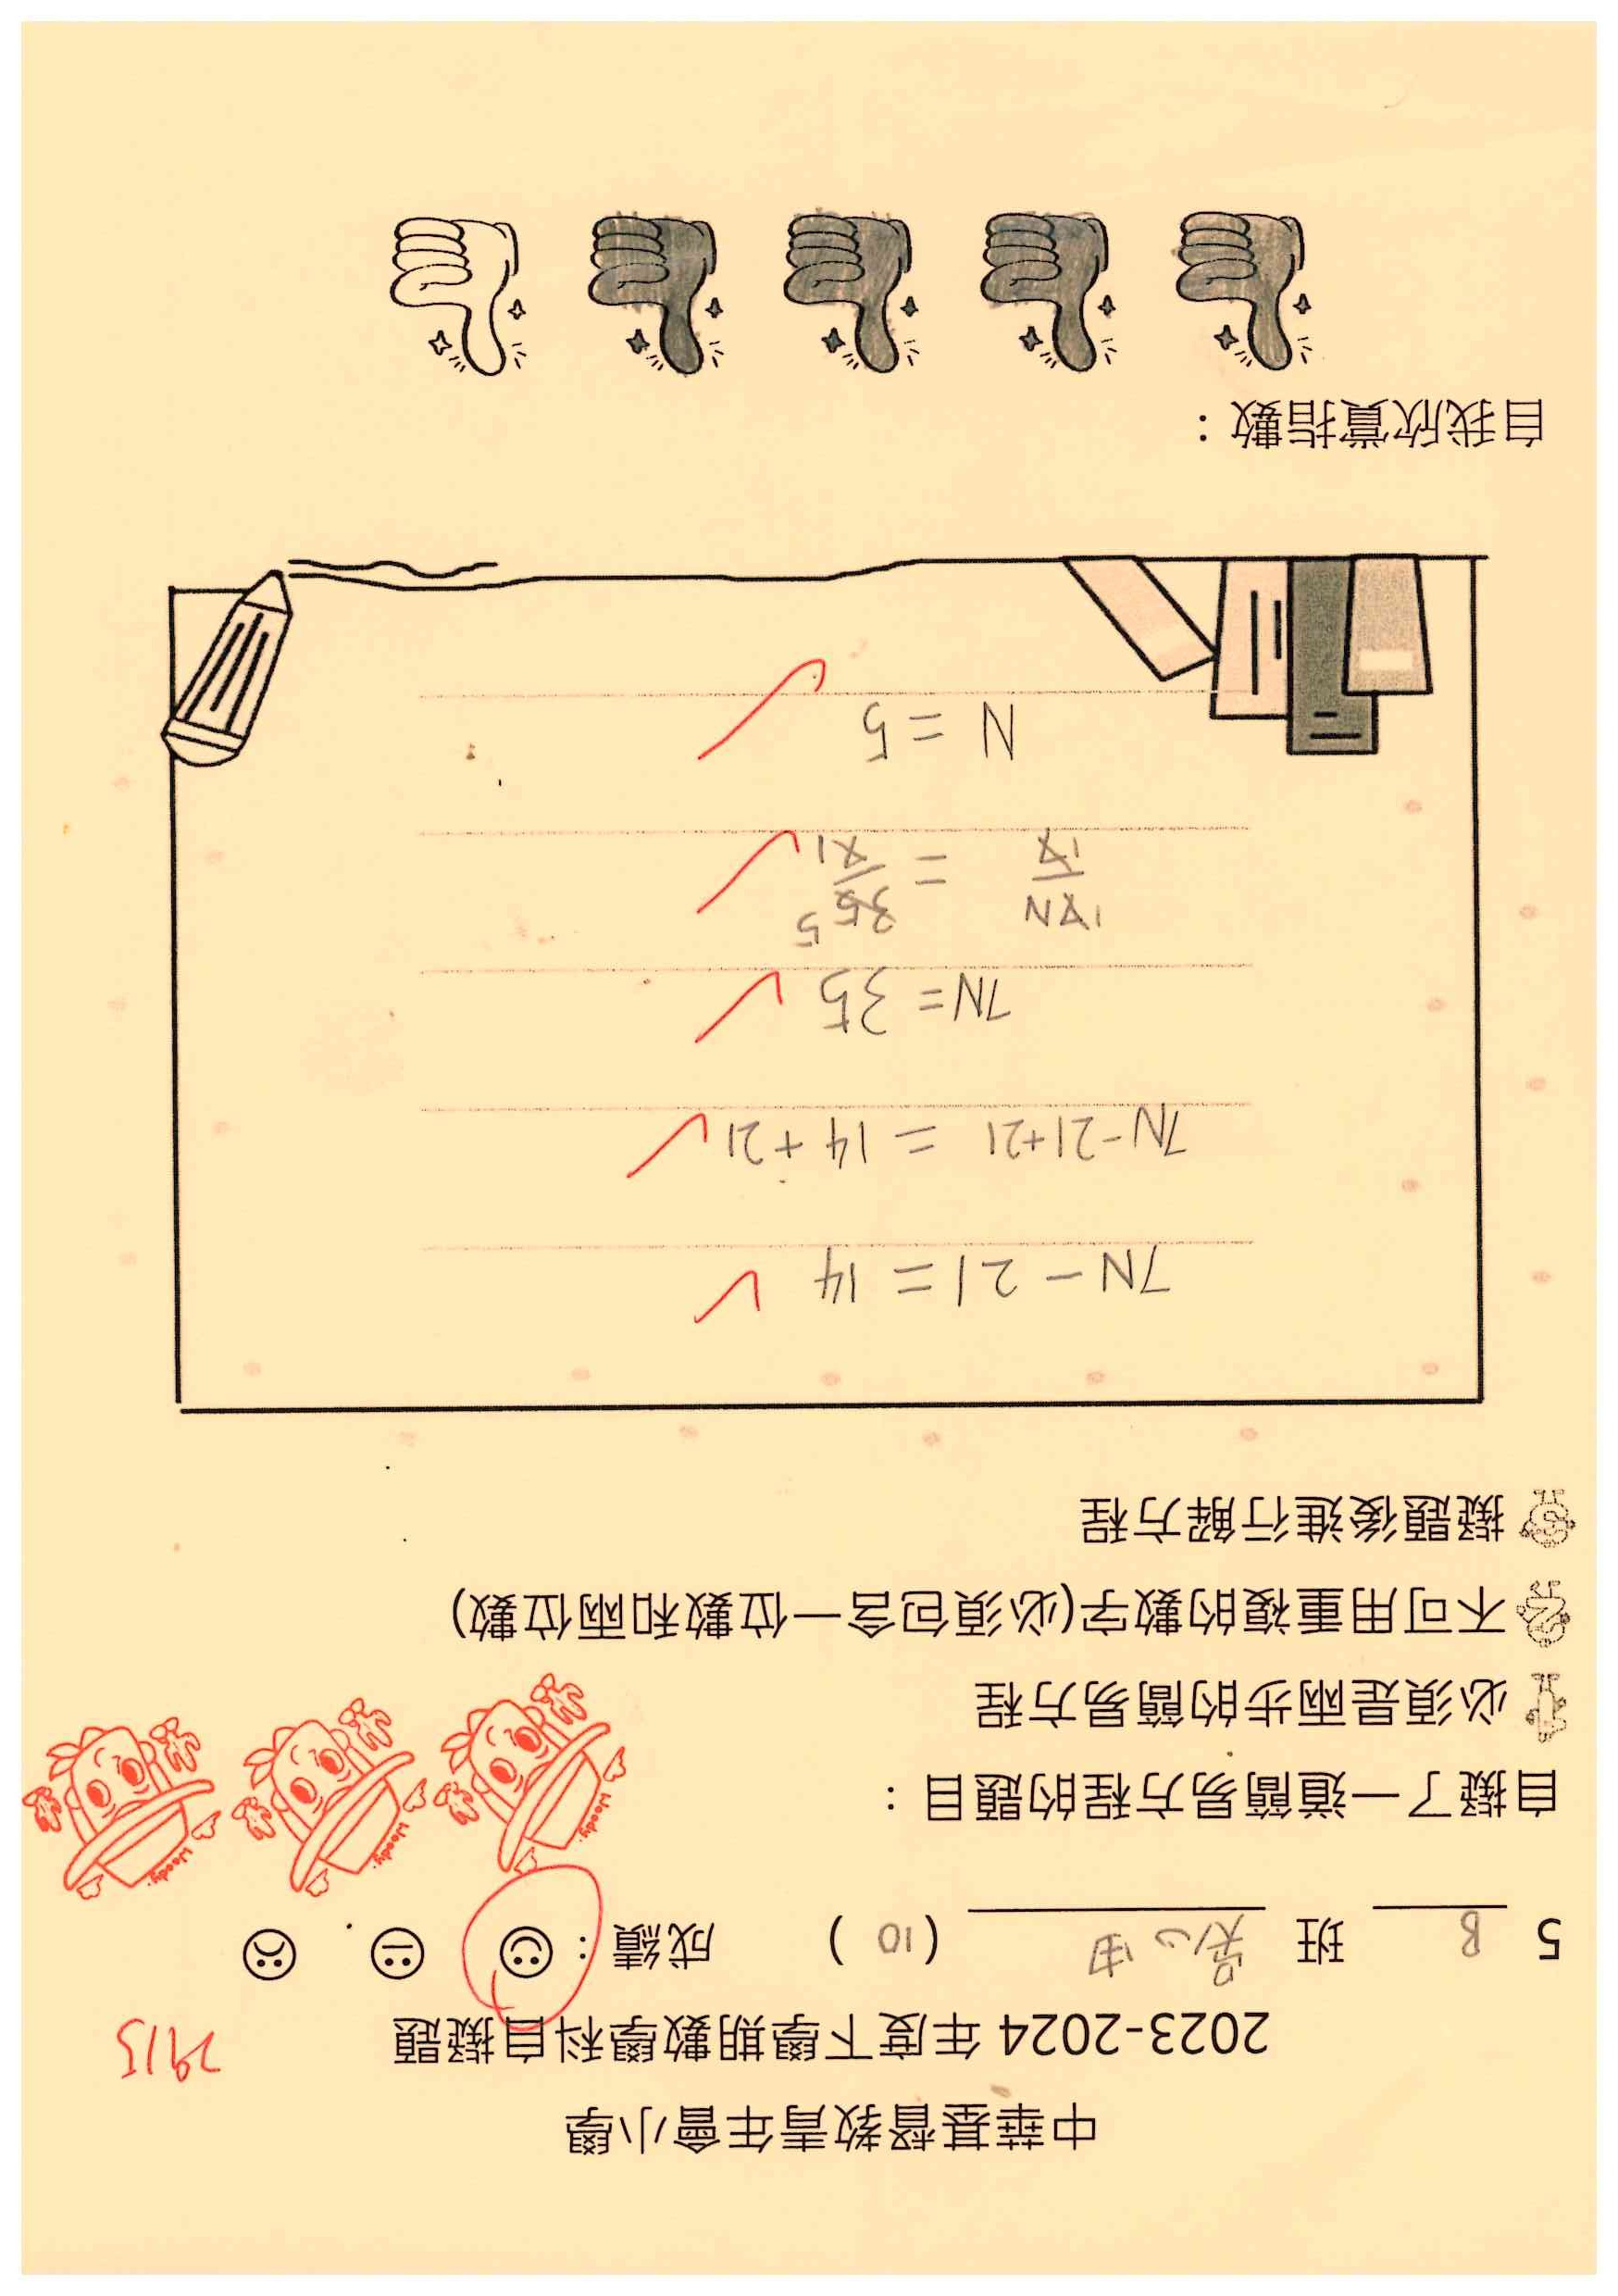 中華基督教青年會小學
2023-2024 年度下學期數學科自擬題
29/5
5 B 班 吳心 (10) 成績：
自擬了一道簡易方程的題目：
必須是兩步的簡易方程
不可用重複的數字(必須包含一位數和兩位數)
擬題後進行解方程
7N - 21 = 14
7N-21+21 = 14+21
7N = 35
17N 35 5
= 
17 71
N = 5
自我欣賞指數：
Woody.
Woody.
Woody.